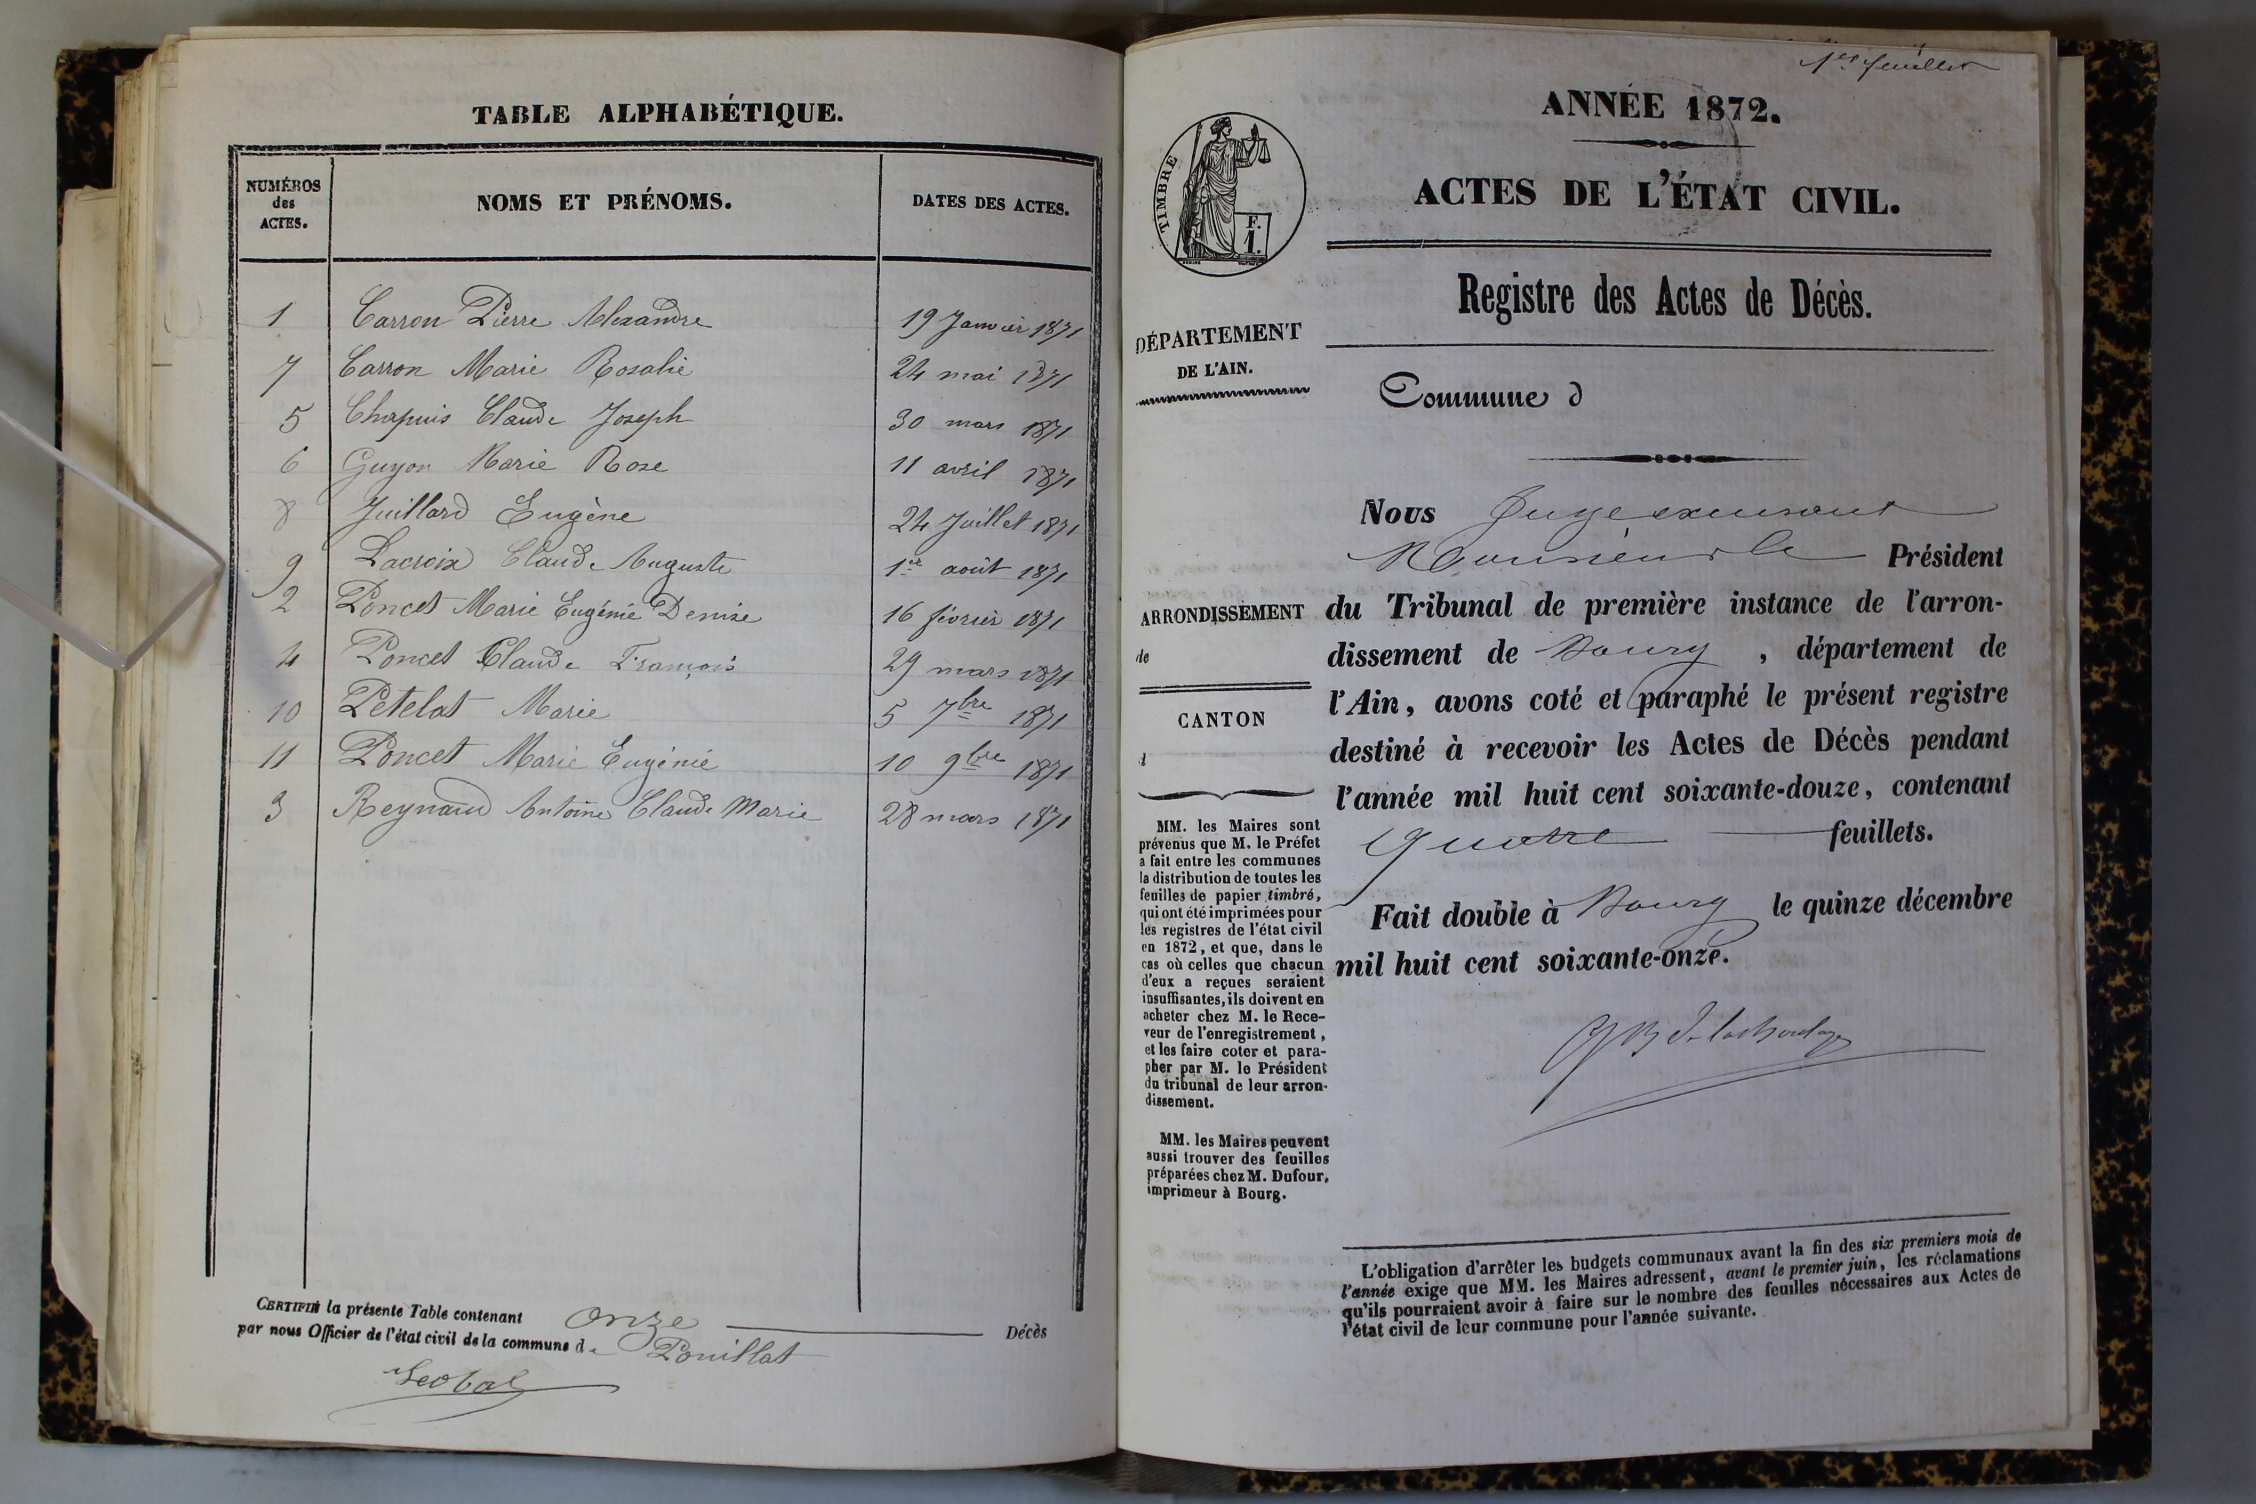 TABLE ALPHABÉTIQUE.
NUMÉROS
des
ACTES.
NOMS ET PRÉNOMS.
DATES DES ACTES.
1 Carron Pierre Alexandre 19 Janvier 1871
7 Carron Marie Rosalie 24 mai 1871
5 Chapuis Claude Joseph 30 mars 1871
6 Guyon Marie Rose 11 avril 1871
8 Juillard Eugène 24 Juillet 1871
9 Lacroix Claude Auguste 1er août 1871
2 Poncet Marie Eugénie Denise 16 février 1871
4 Poncet Claude François 29 mars 1871
10 Petelat Marie 5 7bre 1871
11 Poncet Marie Eugénie 10 9bre 1871
3 Reynaud Antoine Claude Marie 28 mars 1871
CERTIFIÉ la présente Table contenant onze Décès
par nous Officier de l'état civil de la commune de Pouillat
1er feuillet
ANNÉE 1872.
ACTES DE L'ÉTAT CIVIL.
Registre des Actes de Décès.
TIMBRE
F.
1.
DÉPARTEMENT
DE L'AIN.
Commune d
ARRONDISSEMENT
de
CANTON
d
MM. les Maires sont
prévenus que M. le Préfet
a fait entre les communes
la distribution de toutes les
feuilles de papier timbré,
qui ont été imprimées pour
les registres de l'état civil
en 1872, et que, dans le
cas où celles que chacun
d'eux a reçues seraient
insuffisantes, ils doivent en
acheter chez M. le Rece-
veur de l'enregistrement,
et les faire coter et para-
pher par M. le Président
du tribunal de leur arron-
dissement.
MM. les Maires peuvent
aussi trouver des feuilles
préparées chez M. Dufour,
imprimeur à Bourg.
Nous Juge excusant
Monsieur le Président
du Tribunal de première instance de l'arron-
dissement de Bourg, département de
l'Ain, avons coté et paraphé le présent registre
destiné à recevoir les Actes de Décès pendant
l'année mil huit cent soixante-douze, contenant
quatre feuillets.
Fait double à Bourg le quinze décembre
mil huit cent soixante-onze.
L'obligation d'arrêter les budgets communaux avant la fin des six premiers mois de
l'année exige que MM. les Maires adressent, avant le premier juin, les réclamations
qu'ils pourraient avoir à faire sur le nombre des feuilles nécessaires aux Actes de
l'état civil de leur commune pour l'année suivante.